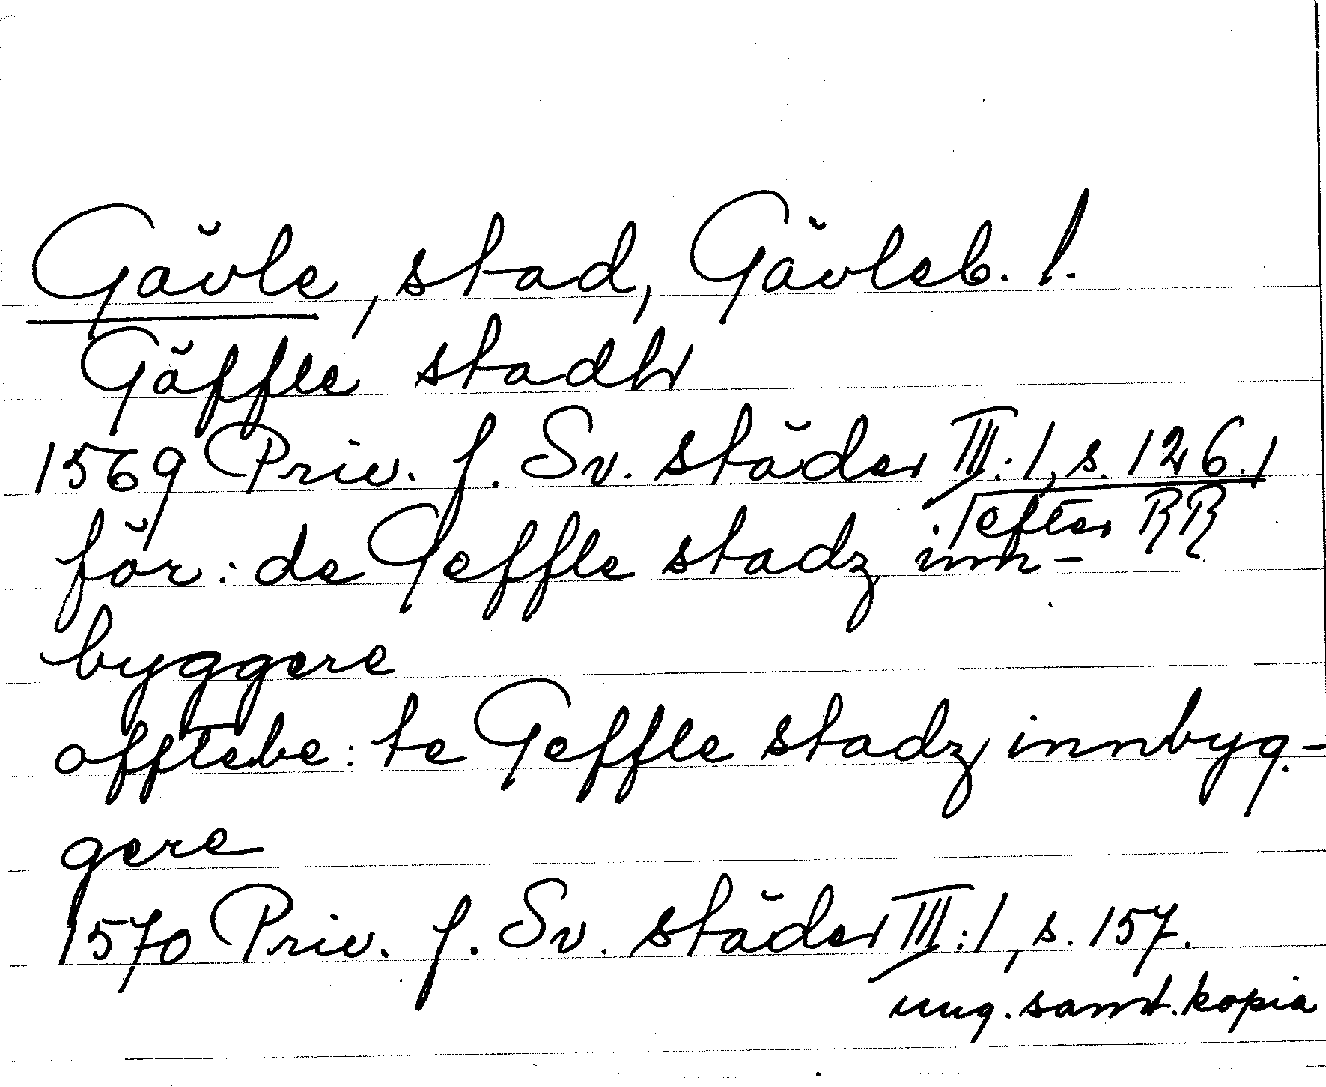 Gävle, stad, Gävleb. l.
Gäffle stadh
1569 Priv. f. Sv. städer III:1, s. 126.
efter RR
för: de Geffle stadz inn-
byggere
offtebe: te Geffle stadz innbyg-
gere
1570 Priv. f. Sv. städer III:1, s. 157.
ung. samt. kopia